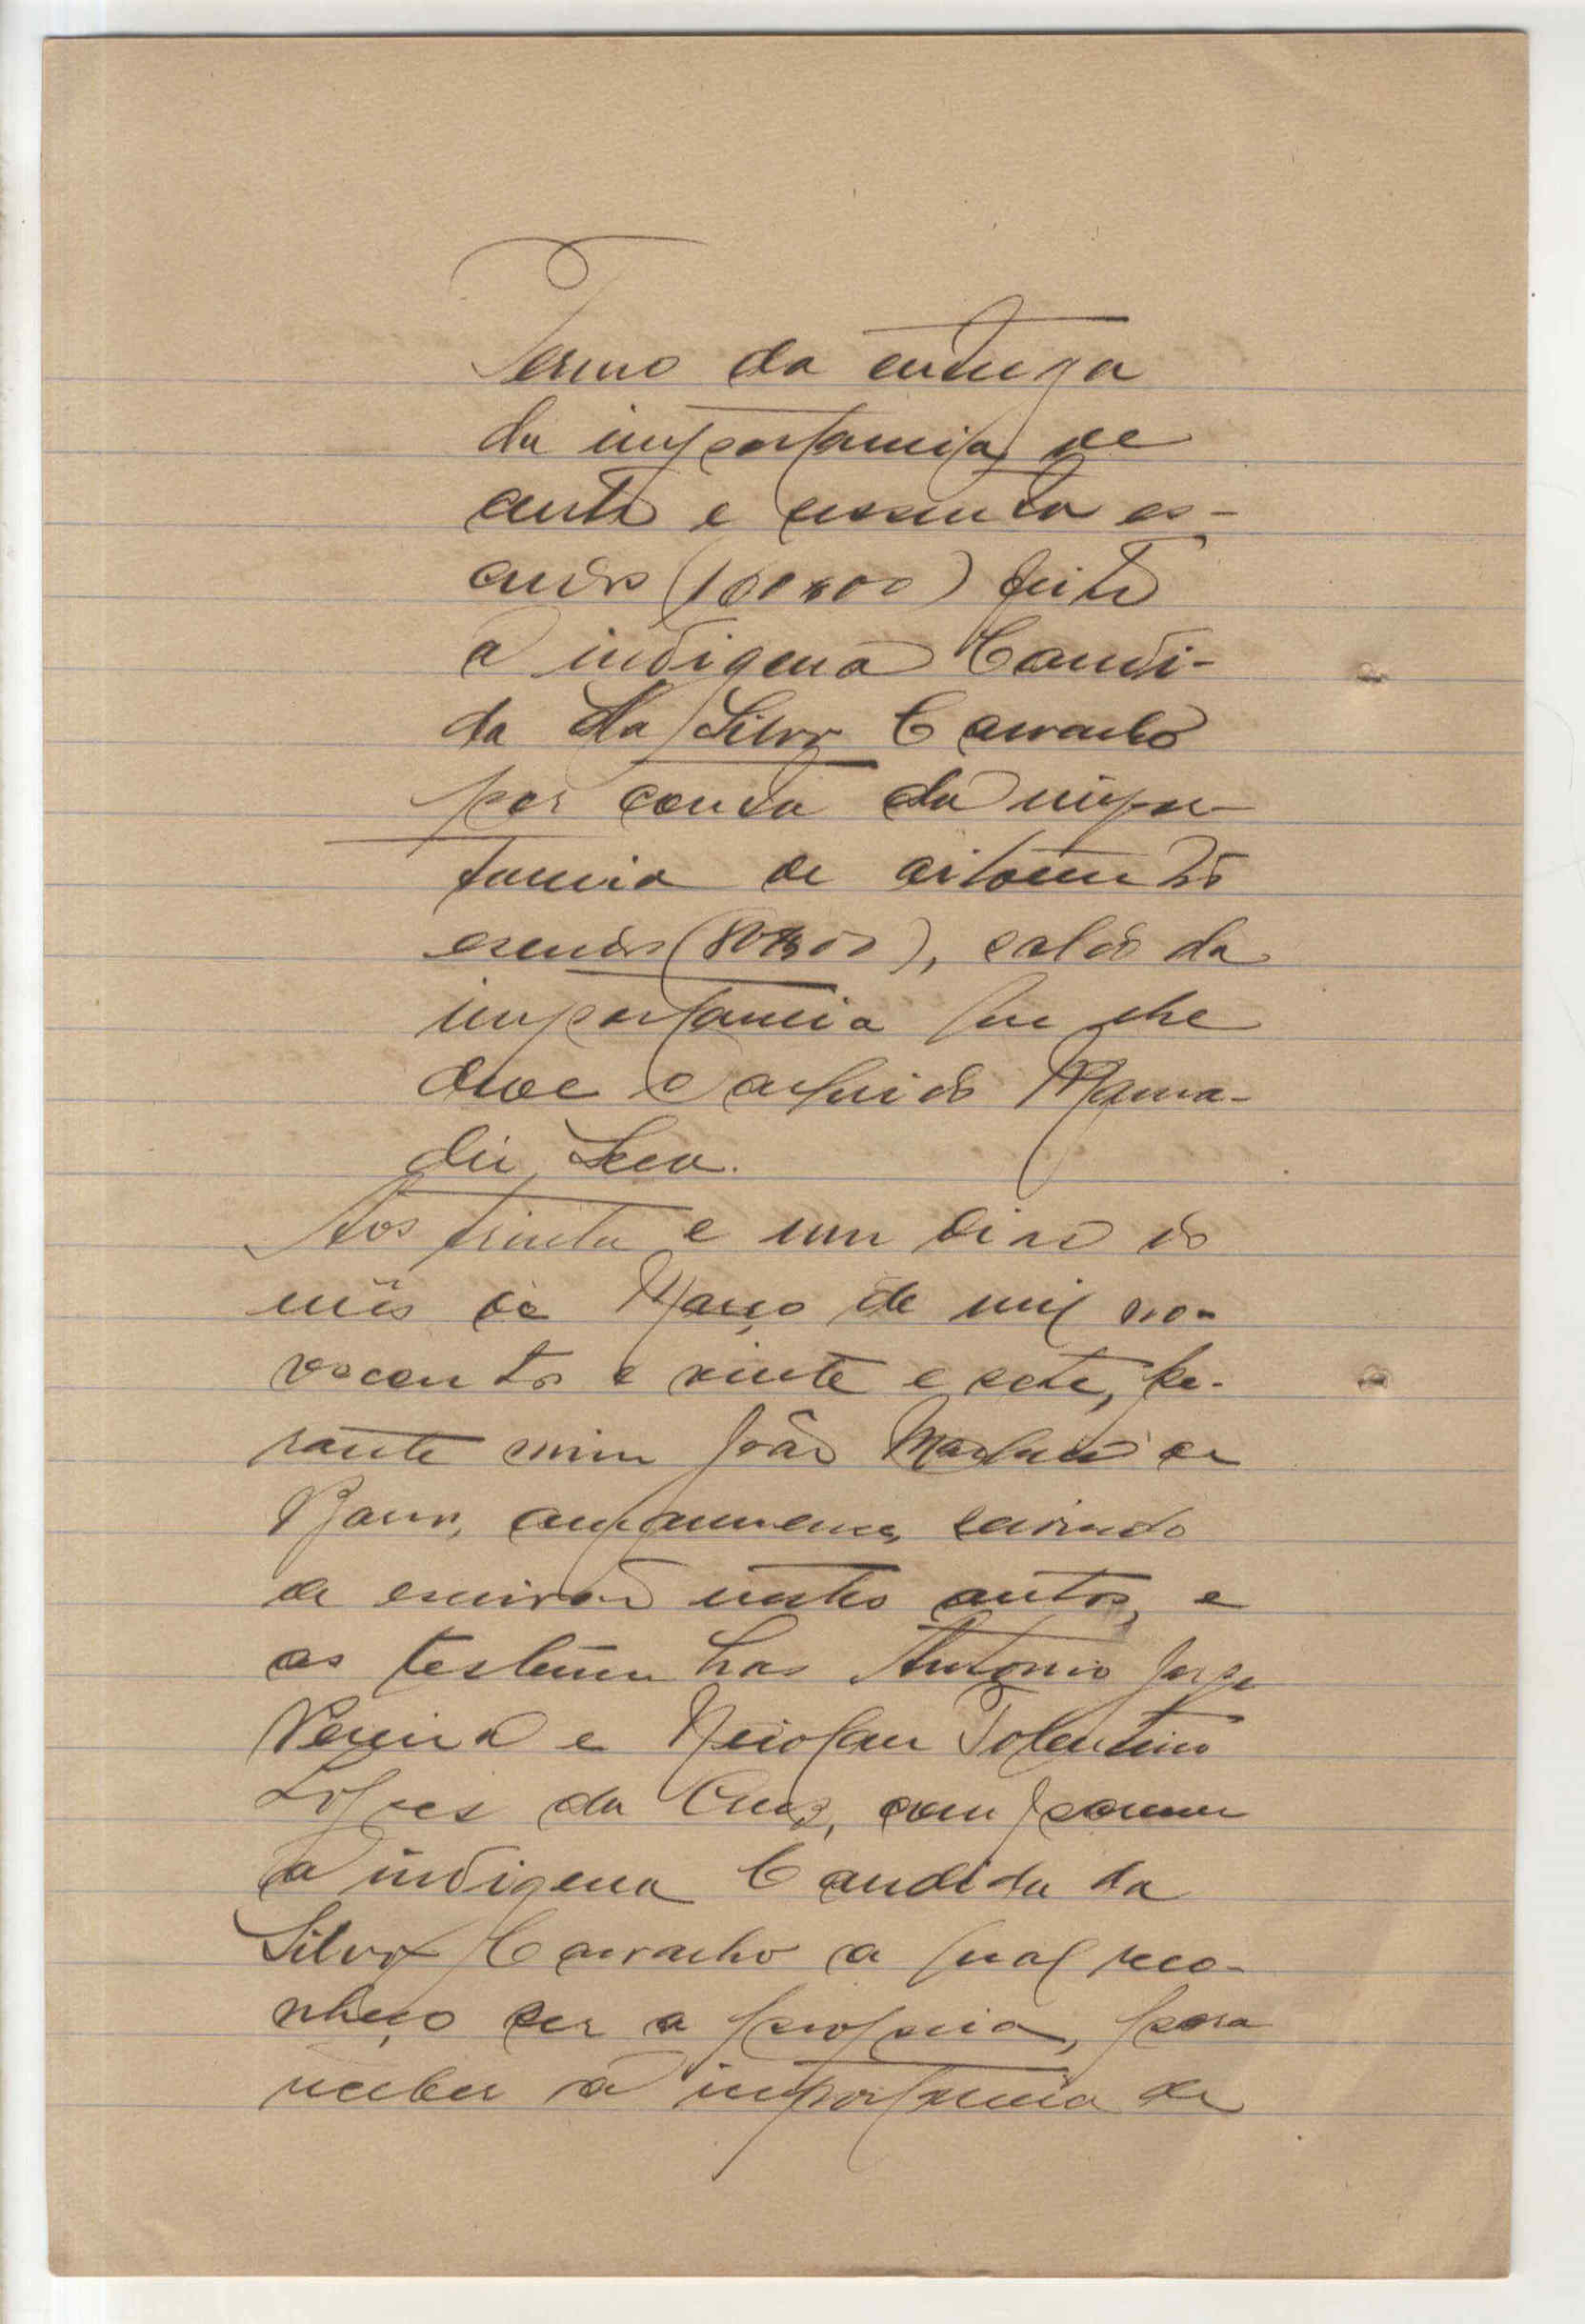 Termo da entrega
da importancia de
cento e sessenta es-
cudos (160$00) feito
á indigena Candi-
da da Silva Carvalho
por conta da impor-
tancia de oitocentos
escudos (800$00), saldo da
importancia que lhe
deve o arguido Mama-
du Seca.
Aos trinta e um dias do
mês de Março de mil no-
vecentos e vinte e sete, pe-
rante mim João de
Barros, amanuense, servindo
de escrivão nestes autos, e
as testemunhas Antonio Jorge
Pereira e Nicolau Tolentino
Lopes da Cruz, compareceu
a indigena Candida da
Silva Carvalho a qual reco-
nheço ser a propria, para
receber a importancia de